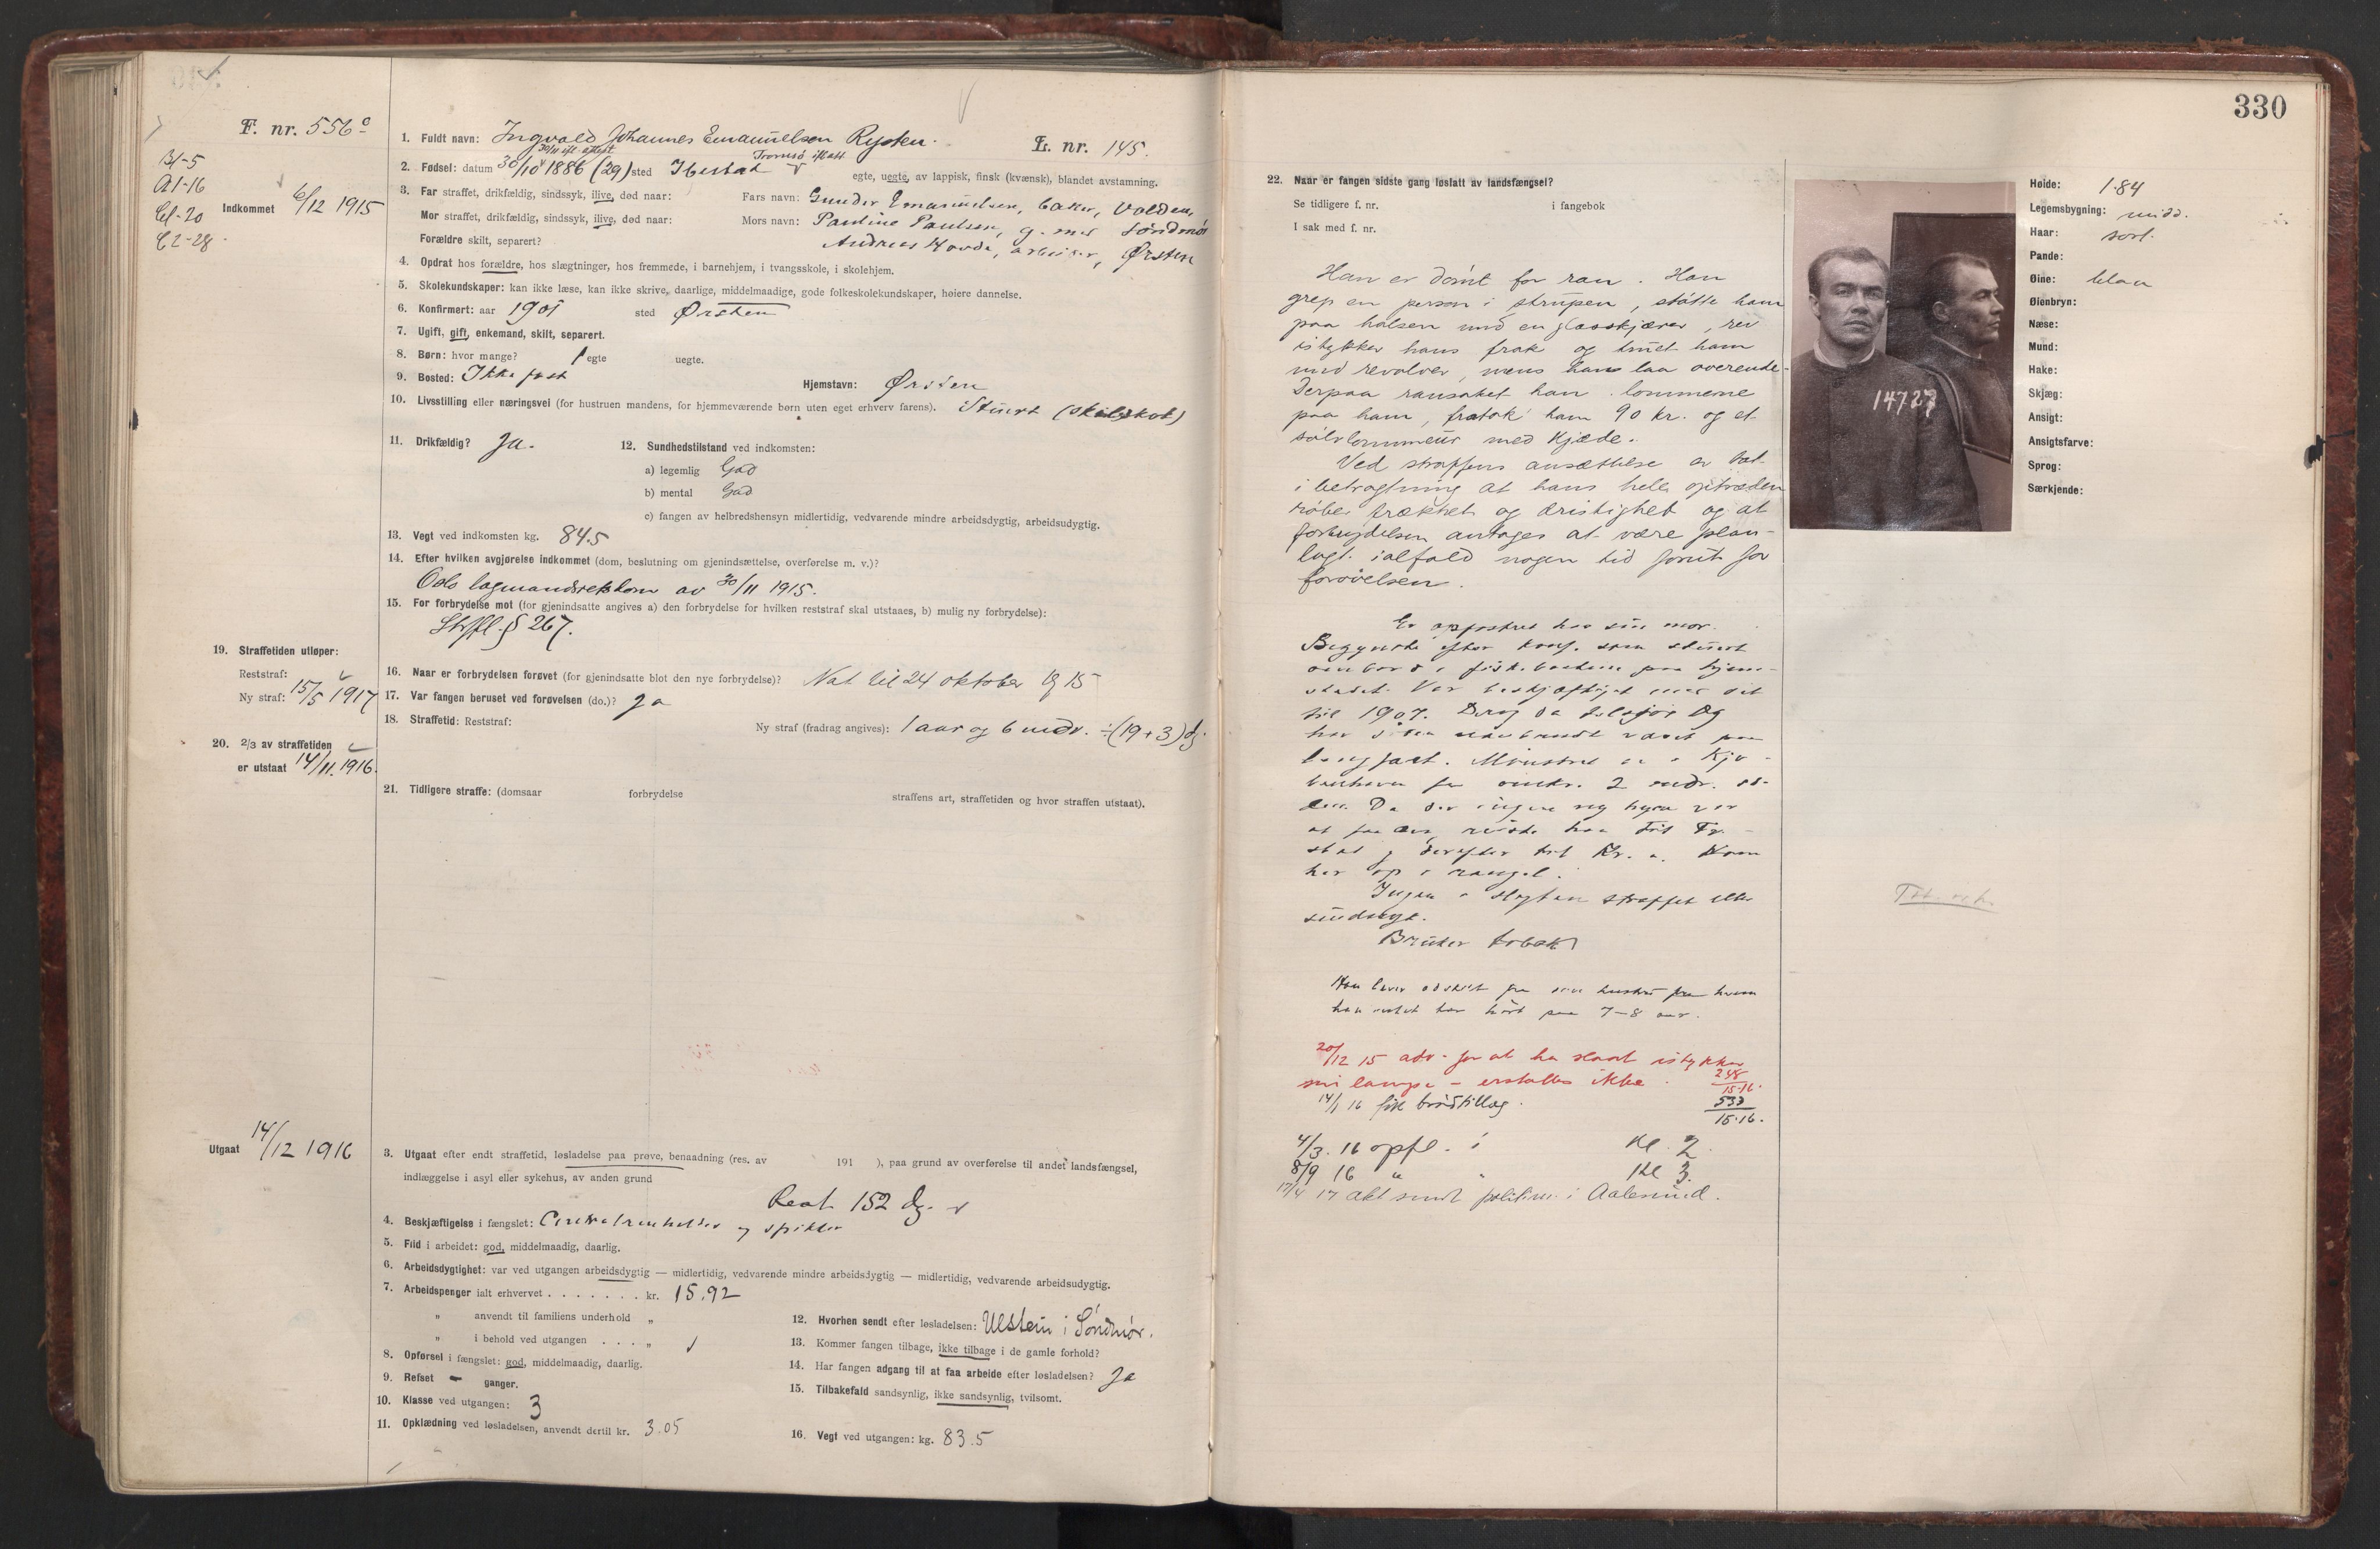 F. nr. 556c
B1-5
A1-16
C1-20
C2-28
Indkommet 6/12 1915
1. Fuldt navn: Ingvald Johannes Emanuelsen Rysten. L. nr. 145.
30/11 ifl. attest Tromsø ifl att
2. Fødsel: datum 30/10 1886 (29) sted Ibestad
egte, uegte, av lappisk, finsk (kvænsk), blandet avstamning.
3. Far straffet, drikfældig, sindssyk, ilive, død naar: Fars navn: Gunder Emanuelsen, baker, Volden,
Mor straffet, drikfældig, sindssyk, ilive, død naar: Mors navn: Pauline Paulsen, g. med Søndmør
Forældre skilt, separert? Andreas Hovde, arbeider, Ørsten
4. Opdrat hos forældre, hos slægtninger, hos fremmede, i barnehjem, i tvangsskole, i skolehjem.
5. Skolekundskaper: kan ikke læse, kan ikke skrive, daarlige, middelmaadige, gode folkeskolekundskaper, høiere dannelse.
6. Konfirmert: aar 1901 sted Ørsten
7. Ugift, gift, enkemand, skilt, separert.
8. Børn: hvor mange? 1 egte uegte.
9. Bosted: Ikke fast Hjemstavn: Ørsten
10. Livsstilling eller næringsvei (for hustruen mandens, for hjemmeværende børn uten eget erhverv farens). Stuert
11. Drikfældig? Ja.
12. Sundhedstilstand ved indkomsten:
a) legemlig God
b) mental God
c) fangen av helbredshensyn midlertidig, vedvarende mindre arbeidsdygtig, arbeidsudygtig.
13. Vegt ved indkomsten kg. 84.5
14. Efter hvilken avgjørelse indkommet (dom, beslutning om gjenindsættelse, overførelse m. v.)?
Oslo lagmandsretsdom av 30/11 1915.
15. For forbrydelse mot (for gjenindsatte angives a) den forbrydelse for hvilken reststraf skal utstaaes, b) mulig ny forbrydelse):
Strfl. § 267.
19. Straffetiden utløper:
Reststraf:
Ny straf: 15/5 1917
16. Naar er forbrydelsen forøvet (for gjenindsatte blot den nye forbrydelse)? Nat til 24 oktober 1915
17. Var fangen beruset ved forøvelsen (do.)? Ja
18. Straffetid: Reststraf: Ny straf (fradrag angives): 1 aar og 6 mdr. ÷ (19+3) dg.
20. 2/3 av straffetiden
er utstaat 14/11.1916.
21. Tidligere straffe: (domsaar forbrydelse straffens art, straffetiden og hvor straffen utstaat).
Utgaat 14/12 1916
3. Utgaat efter endt straffetid, løsladelse paa prøve, benaadning (res. av 191 ), paa grund av overførelse til andet landsfængsel,
indlæggelse i asyl eller sykehus, av anden grund
Rest 152 dg.
4. Beskjæftigelse i fængslet: Centralrenholder og spikker
5. Flid i arbeidet: god, middelmaadig, daarlig.
6. Arbeidsdygtighet: var ved utgangen arbeidsdygtig — midlertidig, vedvarende mindre arbeidsdygtig — midlertidig, vedvarende arbeidsudygtig.
7. Arbeidspenger ialt erhvervet . . . . . . . kr. 15.92
„ anvendt til familiens underhold „
„ i behold ved utgangen . . . . „
8. Opførsel i fængslet: god, middelmaadig, daarlig.
9. Refset - ganger.
10. Klasse ved utgangen: 3
11. Opklædning ved løsladelsen, anvendt dertil kr. 3.05
12. Hvorhen sendt efter løsladelsen: Ulstein i Søndmør.
13. Kommer fangen tilbage, ikke tilbage i de gamle forhold?
14. Har fangen adgang til at faa arbeide efter løsladelsen? Ja
15. Tilbakefald sandsynlig, ikke sandsynlig, tvilsomt.
16. Vegt ved utgangen: kg. 83.5
330
22. Naar er fangen sidste gang løslatt av landsfængsel?
Se tidligere f. nr. i fangebok
I sak med f. nr.
Han er dømt for ran. Han
grep en person i strupen, støtte ham
paa halsen med en glasskjærer, rev
istykker hans frak og truet ham
med revolver, mens han laa overende.
Derpaa ransaket han lommerne
paa ham, fratok ham 90 kr. og et
sølvlommeur med kjæde.
Ved straffens ansættelse er tat
i betragtning at hans hele optræden
røber frækhet og dristighet og at
forbrydelsen antages at være plan-
lagt ialfald nogen tid forut for
forøvelsen.
Er opfostret hos sin mor.
Begyndte efter konf. som stuert
ombord i fiskebaatene paa hjem-
stedet. Var beskjæftiget med det
til 1907. Drog da tilsjøs og
har siden været paa
langfart. Mønstret av i Kjø-
benhavn for omkr. 2 mdr. si-
den. Da der ingen ny hyre var
at faa der, reiste han til Fr.-
stad og derefter til Kr.a. Kom
her op i rangel.
Ingen i slegten straffet eller
sindssyk.
Bruker tobak
Han lever adskilt fra sin hustru fra hvem
han intet har hørt paa 7-8 aar.
20/12 15 adv. for at ha slaat istykker
sin lampe - erstattes ikke. 248/15-16.
14/1 16 fik brødtillæg. 533/15-16.
4/3. 16 opfl. i Kl. 2.
8/9 16 " " Kl 3.
17/4 17 akt sendt politim. i Aalesund.
14727
Høide: 1.84
Legemsbygning: midd.
Haar: sort.
Pande:
Øine: blaa
Øienbryn:
Næse:
Mund:
Hake:
Skjæg:
Ansigt:
Ansigtsfarve:
Sprog:
Særkjende: